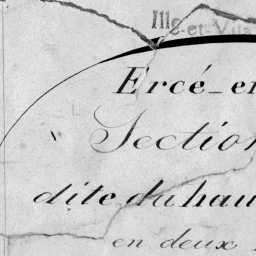 Ille-et-Vila
Ercé-en
Section
dite du hau
en deux